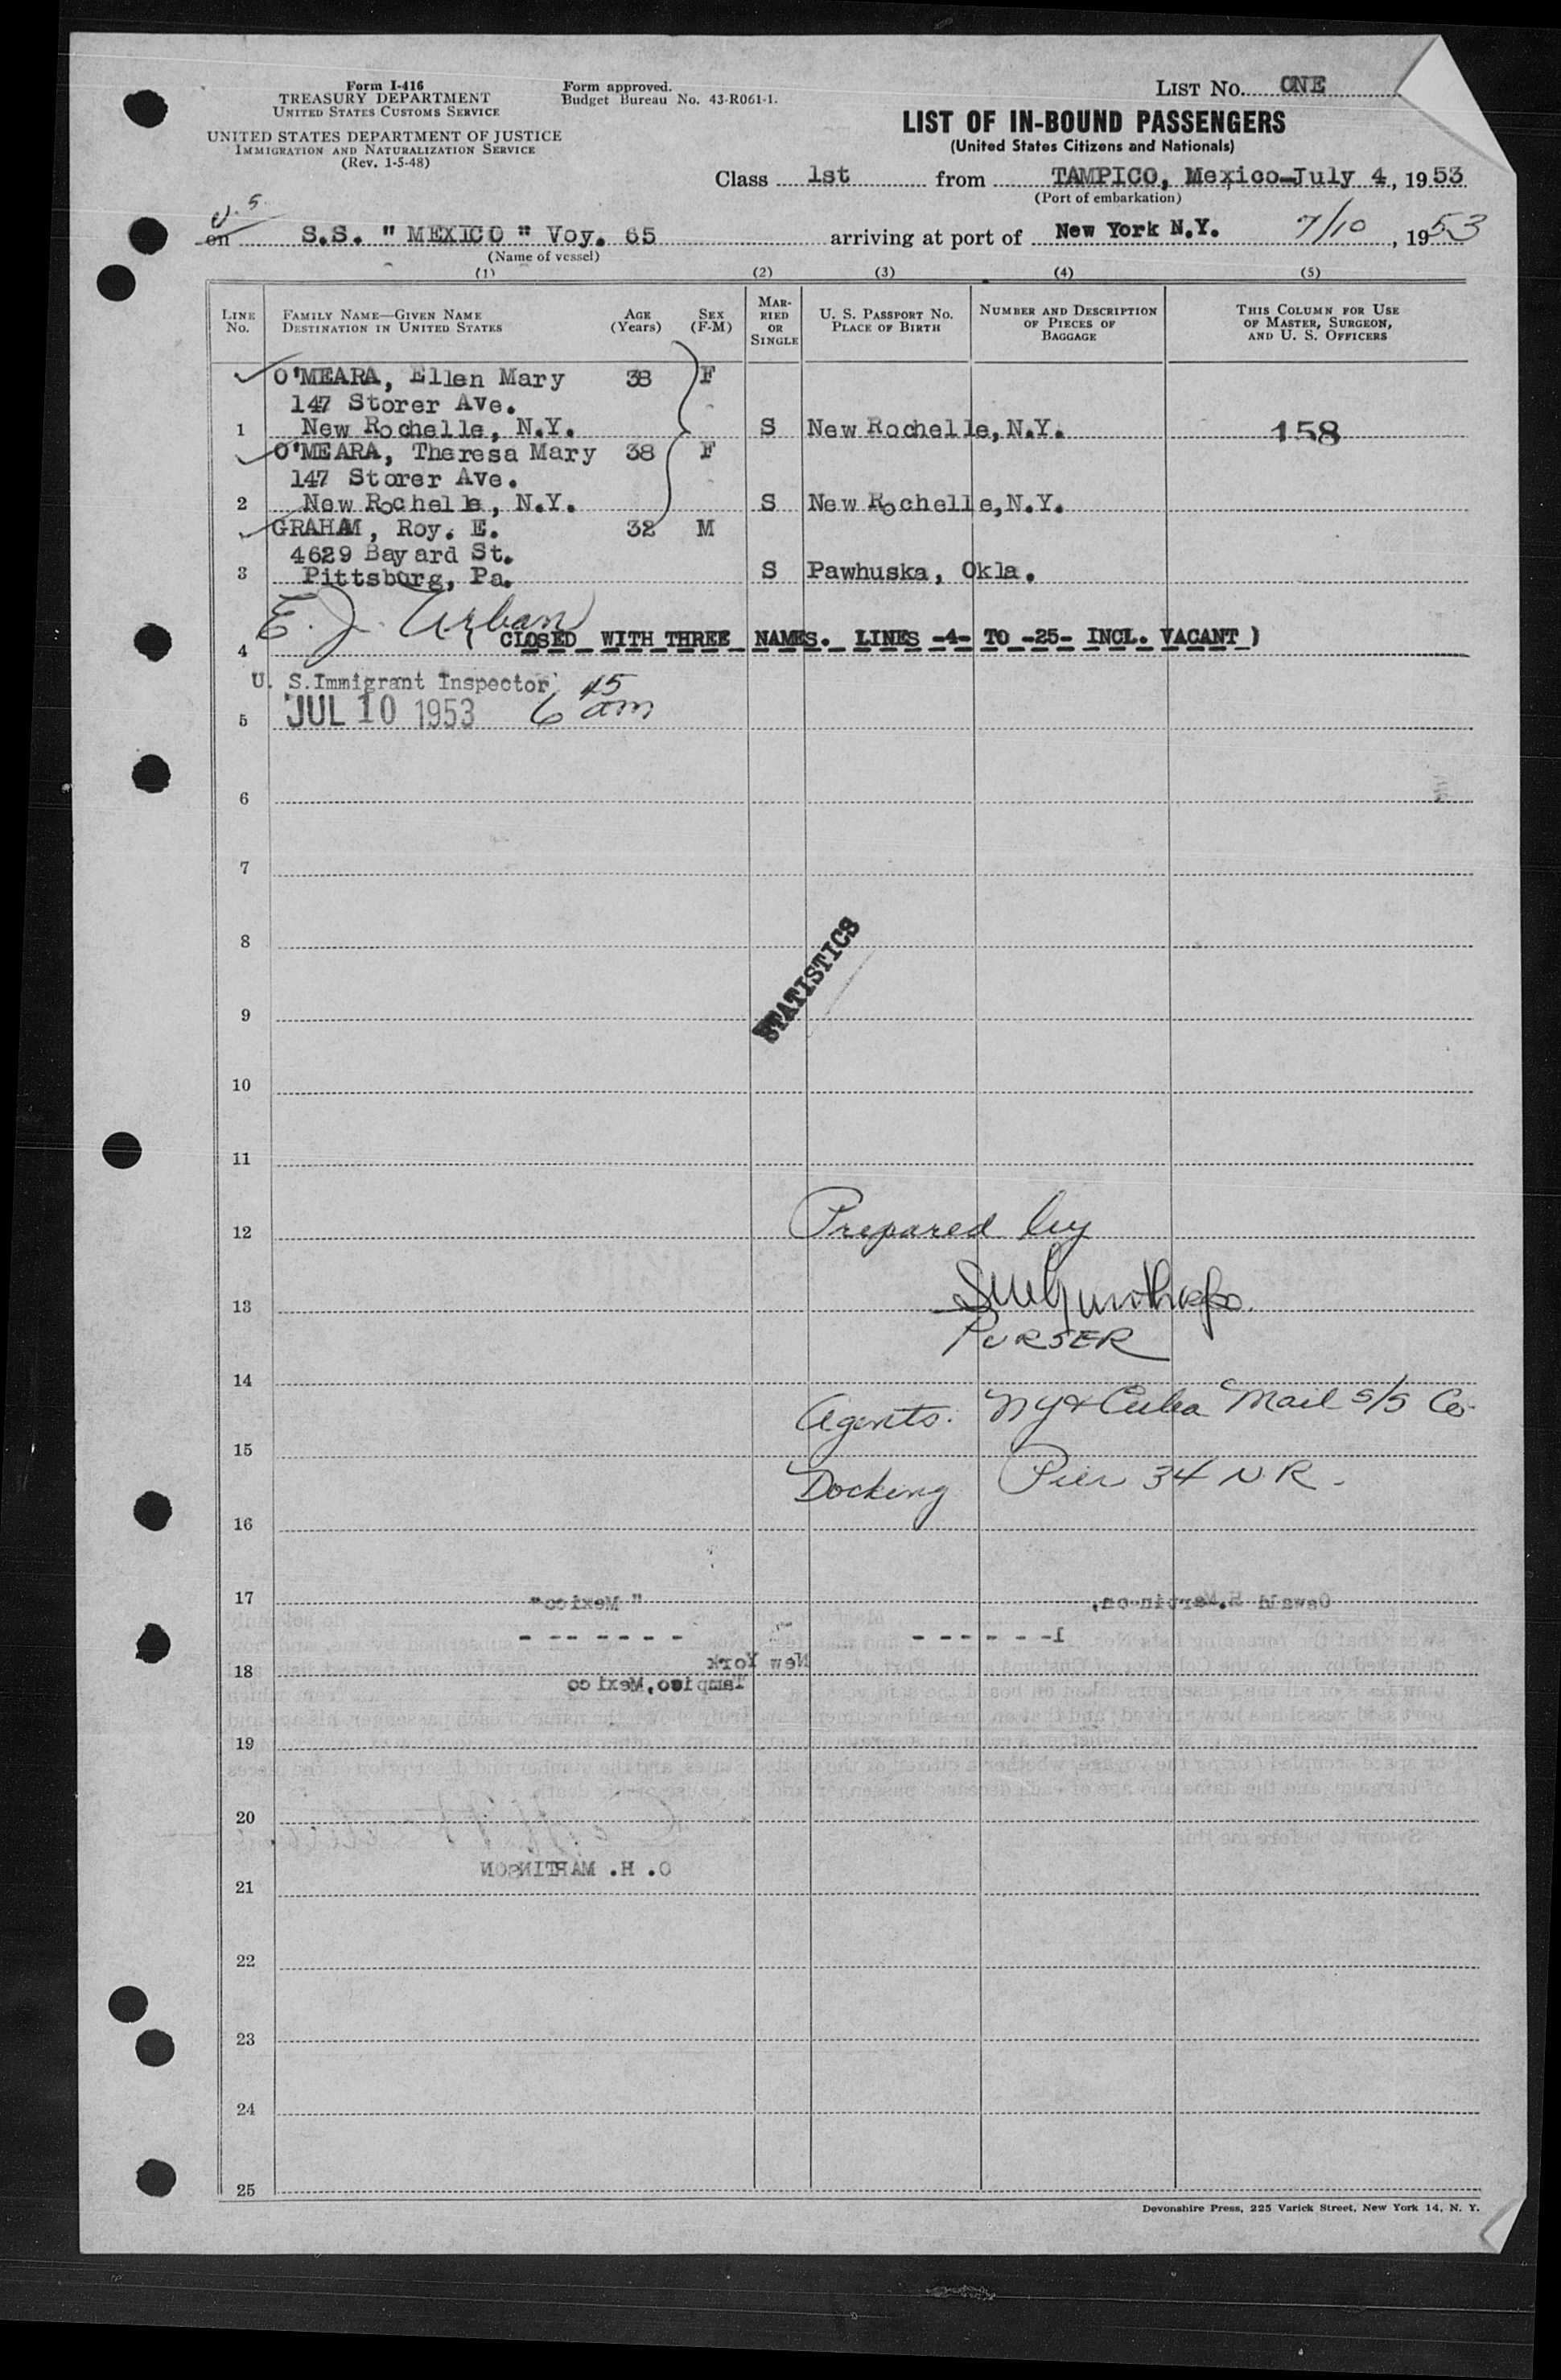 Form I-416
TREASURY DEPARTMENT
UNITED STATES CUSTOMS SERVICE
UNITED STATES DEPARTMENT OF JUSTICE
IMMIGRATION AND NATURALIZATION SERVICE
(Rev. 1-5-48)
Form approved.
Budget Bureau No. 43-R061-1.
LIST No. ONE
LIST OF IN-BOUND PASSENGERS
(United States Citizens and Nationals)
Class 1st from TAMPICO, Mexico-July 4, 1953
(Port of embarkation)
on S.S. " MEXICO " Voy. 65 arriving at port of New York N.Y. 7/10, 1953
(Name of vessel)
(1) (2) (3) (4) (5)
LINE No. FAMILY NAME—GIVEN NAME DESTINATION IN UNITED STATES AGE (Years) SEX (F-M) MARRIED OR SINGLE U. S. PASSPORT No. PLACE OF BIRTH NUMBER AND DESCRIPTION OF PIECES OF BAGGAGE THIS COLUMN FOR USE OF MASTER, SURGEON, AND U. S. OFFICERS
O'MEARA, Ellen Mary 38 F
147 Storer Ave.
1 New Rochelle, N.Y. S New Rochelle, N.Y. 158
O'MEARA, Theresa Mary 38 F
147 Storer Ave.
2 New Rochelle, N.Y. S New Rochelle, N.Y.
GRAHAM, Roy. E. 32 M
4629 Bayard St.
3 Pittsburg, Pa. S Pawhuska, Okla.
E. J. Urban
4 ( CLOSED WITH THREE NAMES. LINES -4- TO -25- INCL. VACANT )
U. S. Immigrant Inspector
5 JUL 10 1953 6 45 am
6
7
8
STATISTICS
9
10
11
12 Prepared by
13
PURSER
14
Agents: NY & Cuba Mail S/S Co.
15
Docking Pier 34 N R.
16
17 " Mexico" Oswald H. Martinson,
- - - - - - - 1- - - - - -
New York
18
Tampico, Mexico
19
20
O. H. MARTINSON
21
22
23
24
25
Devonshire Press, 225 Varick Street, New York 14, N. Y.